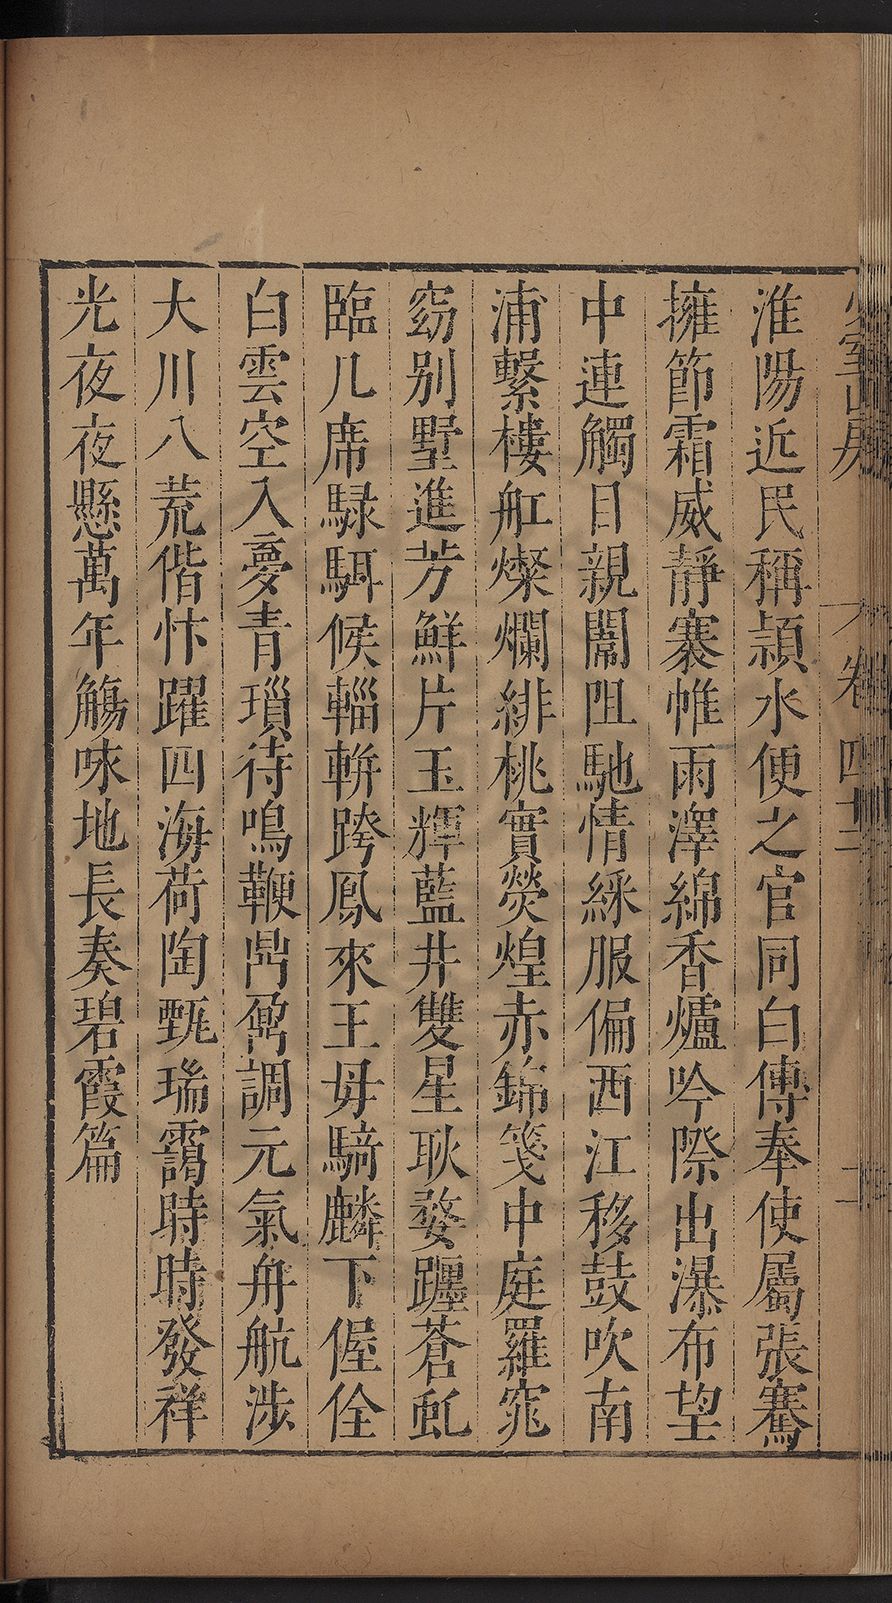 少室山房 卷四十二 二
淮陽近民稱頴水便之官同白傳奉使屬張騫
擁節霜威靜褰帷雨澤綿香爐吟際出瀑布望
中連觸目親闈阻馳情綵服偏西江移鼓吹南
浦繫樓舡燦爛緋桃實熒煌赤錦箋中庭羅窕
窈別墅進芳鮮片玉輝藍井雙星耿婺躔蒼虬
臨几席騄駬候輜軿跨鳳來王母騎麟下偓佺
白雲空入夢青瑣待鳴鞭鼎鼐調元氣舟航涉
大川八荒偕忭躍四海荷陶甄瑞靄時時發祥
光夜夜懸萬年觴味地長奏碧霞篇